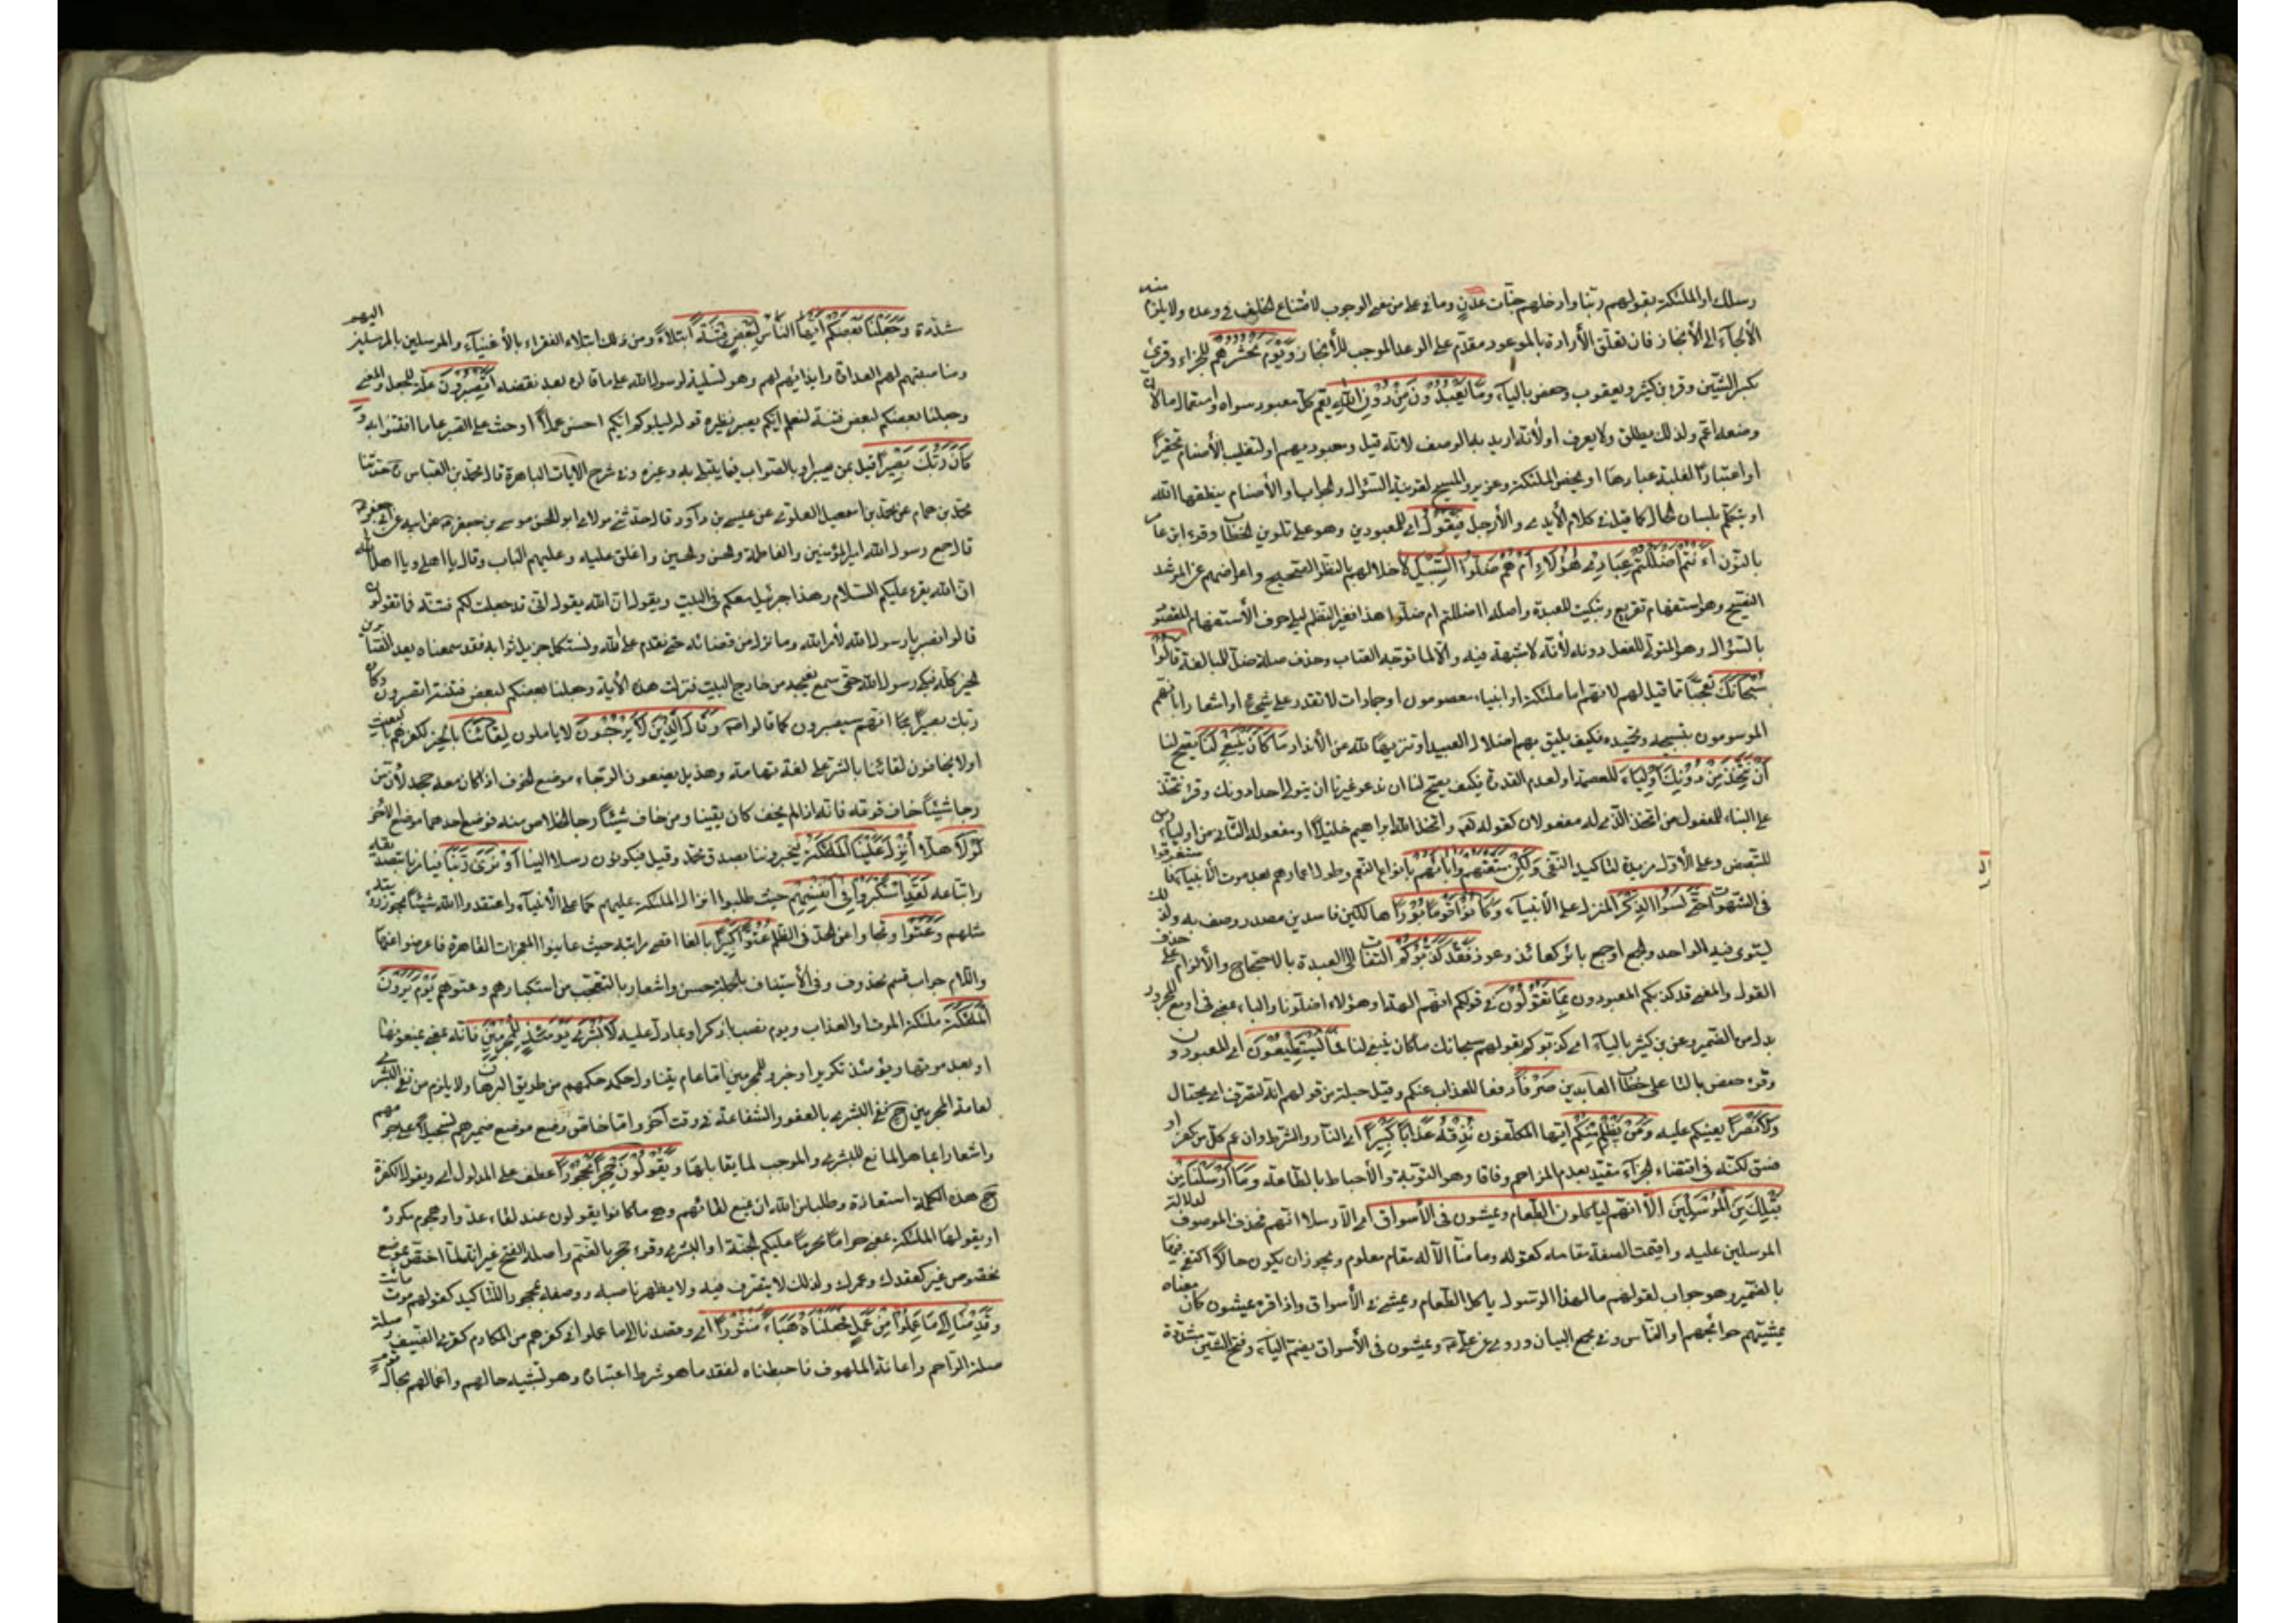 رسلك او الملئكة بقولهم ربنا وادخلهم جنات عدن وما في على من معنى الوجوب لامتناع الخلف في وعده ولا يلزم منه
الألجاء الى الأنجاز فان تعلق الأرادة بالموعود مقدم على الوعد الموجب للأنجاز ويوم نحشرهم للجزاء وقرئ
بكسر الشين وقرء بن كثير ويعقوب وحفص بالياء وما يعبدون من دون الله يعم كل معبود سواه واستعمال ما لان
وضعه اعم ولذلك يطلق ولا يعرف او لأنه اريد به الوصف لانه قيل ومعبوديهم او لتغليب الأصنام تحقيرًا
او اعتبارًا لغلبة عبادها او يخص الملئكة وعزير والمسيح لقرينة السؤال والجواب او الأصنام ينطقها الله
او يتكلم بلسان الحال كما قيل في كلام الأيدي والأرجل فيقول اي للمعبودين وهو على تلوين الخطاب وقرء ابن عامر
بالنون أءنتم اضللتم عبادي هؤلاء ام هم ضلوا السبيل لأخلالهم بالنظر الصحيح واعراضهم عن المرشد
النصيح وهو استفهام تقريع وتبكيت للعبدة واصله اضللتم ام ضلوا هذا فغير النظم ليلي حرف الأستفهام المقصود
بالسؤال وهو المتولي للفعل دونه لأنه لا شبهة فيه والا لما توجه العتاب وحذف صلة ضل للمبالغة قالوا
سبحانك تعجبًا مما قيل لهم لانهم اما ملئكة او انبياء معصومون او جمادات لا تقدر على شيئ او اشعارا بانهم
الموسومون بتسبيحه وتحميده فكيف يليق بهم اضلال العبيد او تنزيهًا لله عن الأنداد ما كان ينبغي لنا يصح لنا
أن نتخذ من دونك من اولياء للعصمة او لعدم القدرة فكيف يصح لنا ان ندعو غيرنا ان يتولى احدا دونك وقرئ نتخذ
على البناء للمفعول من اتخذ الذي له مفعولان كقوله تعالى واتخذ الله ابراهيم خليلًا ومفعوله الثاني من اولياء ومن
للتبعيض وعلى الأول مزيدة لتأكيد النفي ولكن متعتهم وآبائهم بانواع النعم وطول اعمارهم بعد موت الأنبياء فاستغرقوا
في الشهوات حتى نسوا الذكر المنزل على الأنبياء وكانوا قومًا بورًا هالكين فاسدين مصدر وصف به ولذلك
يستوي فيه الواحد والجمع او جمع بائر كعائذ وعوذ فقد كذبوكم التفات الى العبدة بالاحتجاج والألزام على حذف
القول والمعنى قد كذبكم المعبودون بما تقولون في قولكم انهم الهة او هؤلاء اضلونا والباء بمعنى في او مع المجرور
بدل من الضمير وعن بن كثير بالياء اي كذبوكم بقولهم سبحانك ما كان ينبغي لنا فما يستطيعون اي المعبودون
وقرء حفص بالتا على خطاب العابدين صرفًا دفعا للعذاب عنكم وقيل حيلة من قولهم انه ليتصرف اي يحتال
ولا نصرًا يعينكم عليه ومن يظلم منكم ايها المكلفون نذقه عذابًا كبيرًا اي النار والشرط وان عم كل من كفر او
فسق لكنه في اقتضاء الجزاء مقيد بعدم المزاحم وفاقا وهو التوبة والأحباط بالطاعة وما ارسلنا من
قبلك من المرسلين الا انهم ليأكلون الطعام ويمشون في الأسواق اي الا رسلا انهم فحذف الموصوف لدلالة
المرسلين عليه واقيمت الصفة مقامه كقوله وما منا الا له مقام معلوم ويجوز ان يكون حالًا اكتفى فيها
بالضمير وهو جواب لقولهم مالهذا الرسول ياكل الطعام ويمشي في الأسواق واذا قرء يمشون كان معناه
يمشيهم حوائجهم او الناس وفي مجمع البيان وروي عن علي ع ويمشون في الأسواق بضم الياء وفتح الشين مشددة
شددة وجعلنا بعضكم ايها الناس لبعض فتنة ابتلاءً ومن ذلك ابتلاء الفقراء بالأغنياء والمرسلين بالمرسل اليهم
ومناصبتهم لهم العداوة وايذائهم لهم وهو تسلية لرسول الله على ما قالوه بعد نقضه اتصبرون علة للجعل والمعنى
وجعلنا بعضكم لبعض فتنة لنعلم ايكم يصبر ونظيره قوله ليبلوكم ايكم احسن عملًا او حث على الصبر على ما افتتنوا به و
كان ربك بصيرًا قيل بمن يصبر او بالصواب فيما يبتلي به وغيره وفي شرح الايات الباهرة قال محمد بن العباس ره حدثنا
محمد بن همام عن محمد بن اسمعيل العلوي عن عيسى بن داود قال حدثني مولاي ابو الحسن موسى بن جعفر ع عن ابيه عن ابي جعفر ع
قال جمع رسول الله امير المؤمنين والفاطمة والحسن والحسين واغلق عليه وعليهم الباب وقال يا اهلي ويا اهل الله
ان الله يقرء عليكم السلام وهذا جبرئيل معكم في البيت ويقول ان الله يقول اني قد جعلت لكم فتنة فما تقولون
قالوا نصبر يا رسول الله لأمر الله وما نزل من قضائه حتى نقدم على الله ونستكمل جزيل ثوابه فقد سمعناه يعد الصابرين
الخير كله فبكى رسول الله حتى سمع نحيبه من خارج البيت فنزلت هذه الأية وجعلنا بعضكم لبعض فتنة اتصبرون وكان
ربك بصيرًا بما انهم سيصبرون كما قالوا ص وقال الذين لا يرجون لا ياملون لقائنا بالخير لكفرهم بالبعث
اولا يخافون لقائنا بالشر على لغة تهامة وهذيل يضعون الرجاء موضع الخوف اذا كان معه جحد لأن من
رجا شيئًا خاف فوته فانه اذا لم يخف كان يقينا ومن خاف شيئًا رجا الخلاص منه فوضع احدهما موضع الآخر
لولا هلا أنزل علينا الملئكة يخبروننا بصدق محمد وقيل فيكونون رسلا الينا أو نرى ربنا فيأمرنا بتصديقه
واتباعه لقد استكبروا في انفسهم حيث طلبوا انزال الملئكة عليهم كما على الأنبياء واعتقدوا الله شيئًا يجوز رؤيته
مثلهم وعتوا وتجاوزوا عن الحد في الظلم عتوًا كبيرًا بالغا اقصى مراتبه حيث عاينوا المعجزات القاهرة فاعرضوا عنها
والكلام جواب قسم محذوف وفي الأستيناف بالجملة حسن واشعار بالتعجب من استكبارهم وعتوهم يوم يرون
الملئكة ملئكة الموت او العذاب ويوم نصب باذكر او بما دل عليه لا بشرى يومئذ للمجرمين فانه بمعنى يمنعونها
او بعد موتها ويومئذ تكرير او خبر وللمجرمين اما عام يتناول حكمه حكمهم من طريق البرهان ولا يلزم من نفي البشرى
لعامة المجرمين ح نفي البشرى بالعفو والشفاعة في وقت آخر واما خاص وضع موضع ضميرهم تسجيلًا على جرمهم
واشعارا بما هو المانع للبشرى والموجب لما يقابلها ويقولون حجرًا محجورًا عطف على المدلول اي ويقول الكفرة
ح هذه الكلمة استعاذة وطلبا من الله ان يمنع لقائهم وهي مما كانوا يقولون عند لقاء عدو او هجوم مكروه
او يقولها الملئكة بمعنى حرامًا محرمًا عليكم الجنة او البشرى وقرء حجر بالضم واصله الفتح غير انه لما اختص بموضع
مخصوص غير كقعدك وعمرك ولذلك لا يتصرف فيه ولا يظهر ناصبه ووصفه بمحجور للتأكيد كقولهم موت مائت
وقدمنا الى ما عملوا من عمل فجعلناه هباءً منثورًا اي وقصدنا الى ما عملوا في كفرهم من المكارم كقرى الضيف وصلة
صلة الراحم واعانة الملهوف فاحبطناه لفقد ما هو شرط اعتباره وهو تشبيه حالهم واعمالهم بحال قوم